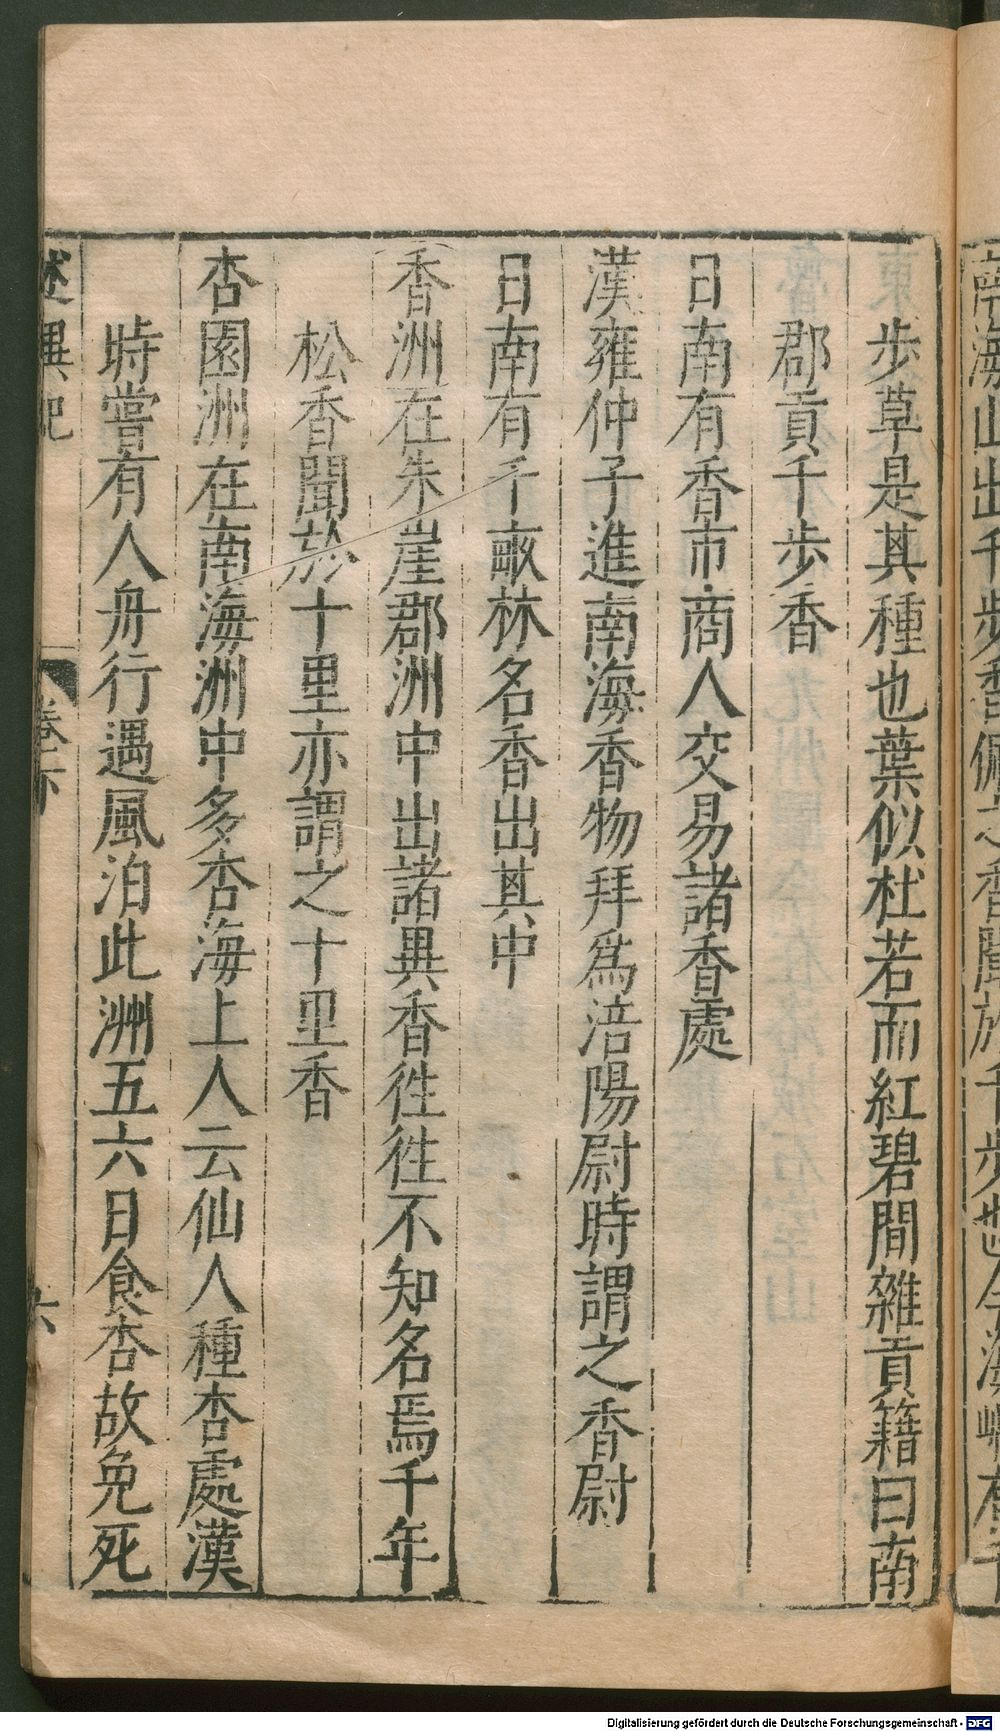 南海山出千步香佩之香聞於千步也今海嵎有千
步草是其種也葉似杜若而紅碧間雜貢籍曰南
郡貢千步香
日南有香市商人交易諸香處
漢雍仲子進南海香物拜爲涪陽尉時謂之香尉
日南有千畝林名香出其中
香洲在朱崖郡洲中出諸異香徃徃不知名焉千年
松香聞於十里亦謂之十里香
杏園洲在南海洲中多杏海上人云仙人種杏處漢
時嘗有人舟行遇風泊此洲五六日食杏故免死
述異記 卷下 六
Digitalisierung gefördert durch die Deutsche Forschungsgemeinschaft - DFG